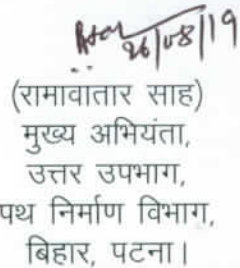 26/08/19
(रामावतार साह)
मुख्य अभियंता,
उत्तर उपभाग,
पथ निर्माण विभाग,
बिहार, पटना।